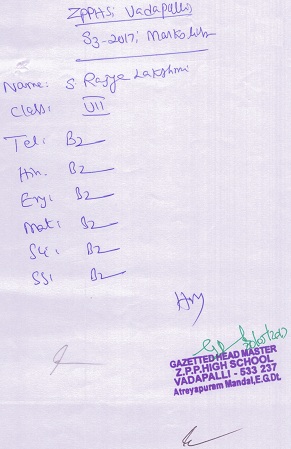 ZPPHS, Vadapalli
S3-2017, Marks list
Name: S. Rajya Lakshmi
Class: VII
Tel: B2
Hin. B2
Eng: B2
Mat: B2
Sci: B2
SS: B2
GAZETTED HEAD MASTER
Z.P.P.HIGH SCHOOL
VADAPALLI - 533 237
Atreyapuram Mandal, E.G.Dt.